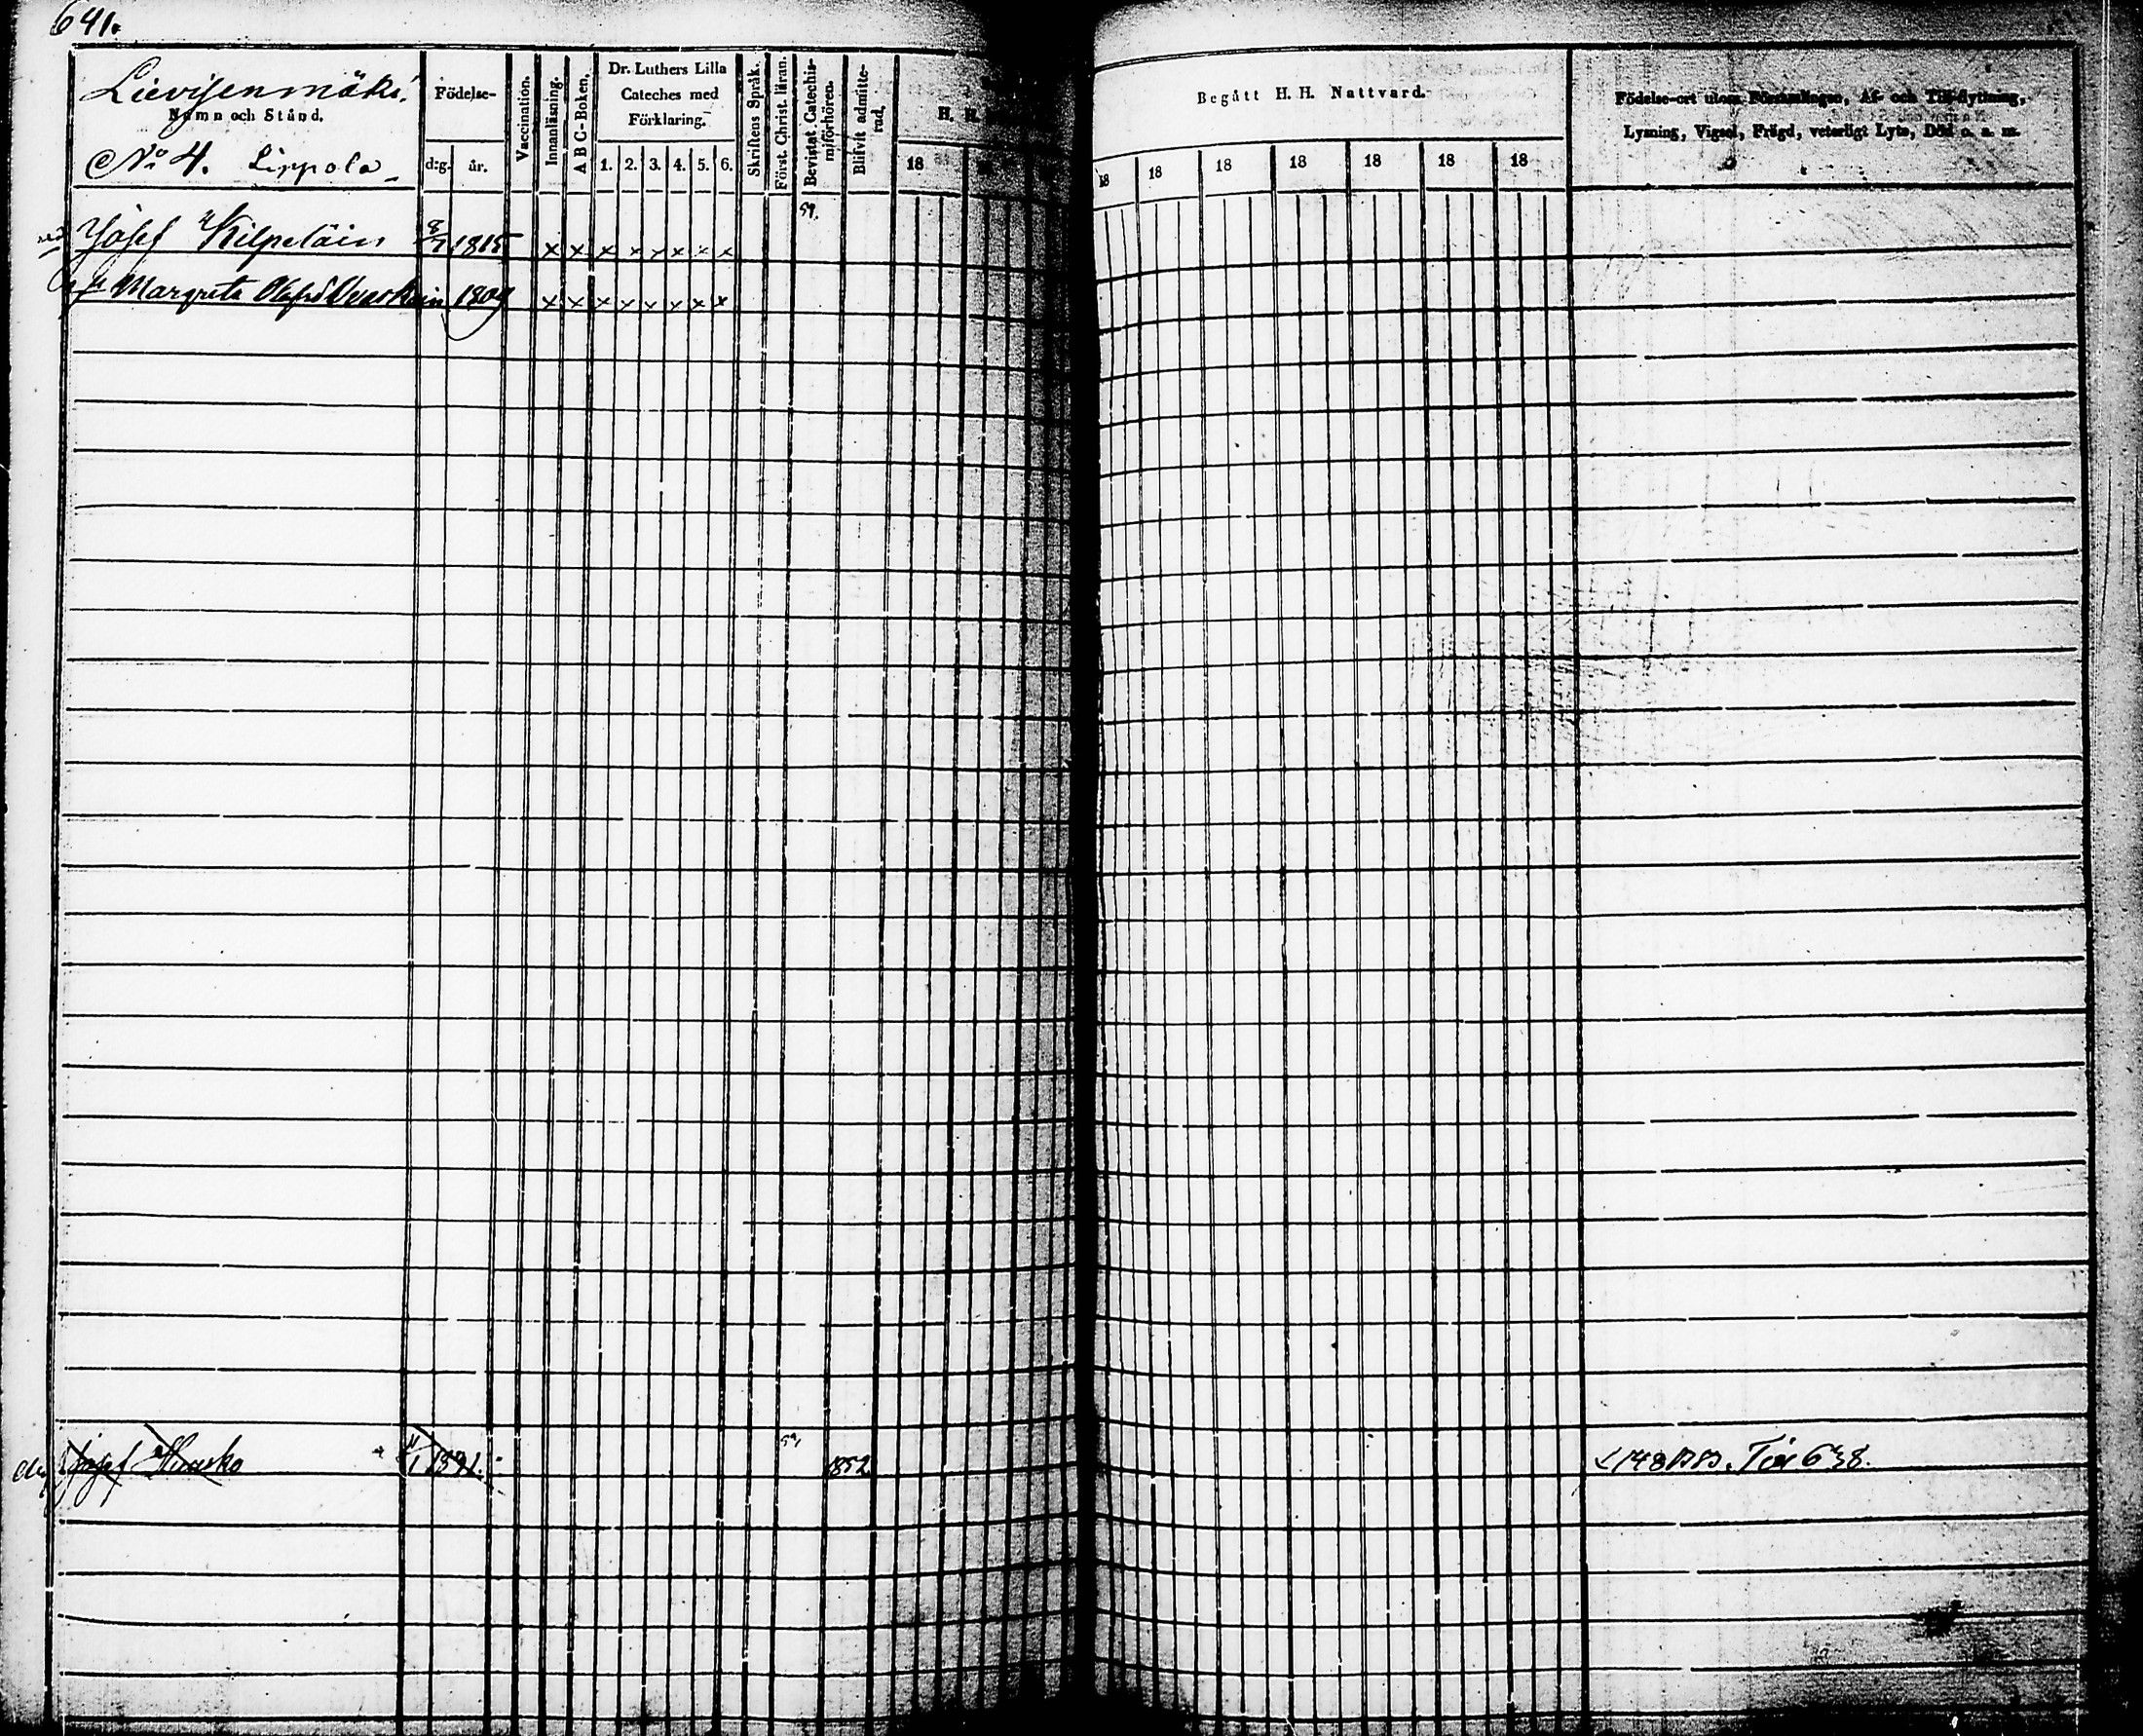 641.
Lievisenmäki.
Namn och Stånd.
No 4. Lippola
Födelse-
d:g. år.
Vaccination.
Innanläsning.
A B C-Boken.
Dr. Luthers Lilla
Cateches med
Förklaring.
1. 2. 3. 4. 5. 6.
Skriftens Språk.
Först. Christ. läran.
Bevistat Catechis-
miförhören.
Blifvit admitte-
rad.
H. H.
18
Begått H. H. Nattvard.
18 18 18 18 18 18 18
Födelse-ort utom Församlingen, Af- och Till-flyttning,
Lysning, Vigsel, Frägd, veterligt Lyte, Död o. s. m.
59.
Josef Kilpeläin 8/7 1815 x x x x x x x x
Margreta Olofsd 1809 x x x x x x x x
59.
Josef 1852
Tör 638.